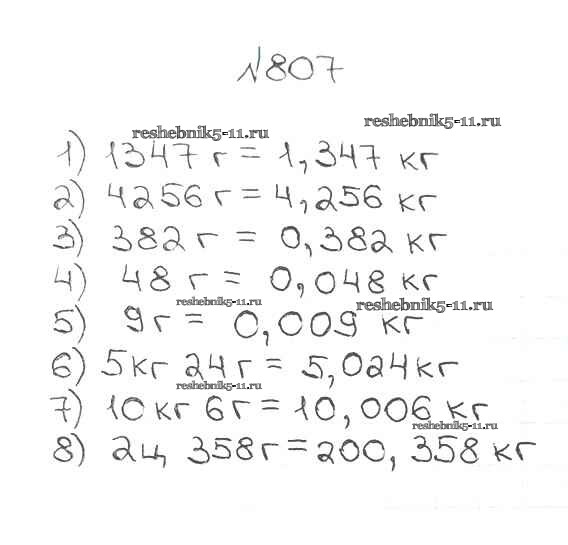 №807
reshebnik5-11.ru
reshebnik5-11.ru
1) 1347 г = 1,347 кг
2) 4256 г = 4,256 кг
3) 382 г = 0,382 кг
4) 48 г = 0,048 кг
reshebnik5-11.ru
reshebnik5-11.ru
5) 9 г = 0,009 кг
6) 5 кг 24 г = 5,024 кг
reshebnik5-11.ru
7) 10 кг 6 г = 10,006 кг
reshebnik5-11.ru
8) 2 ц 358 г = 200,358 кг